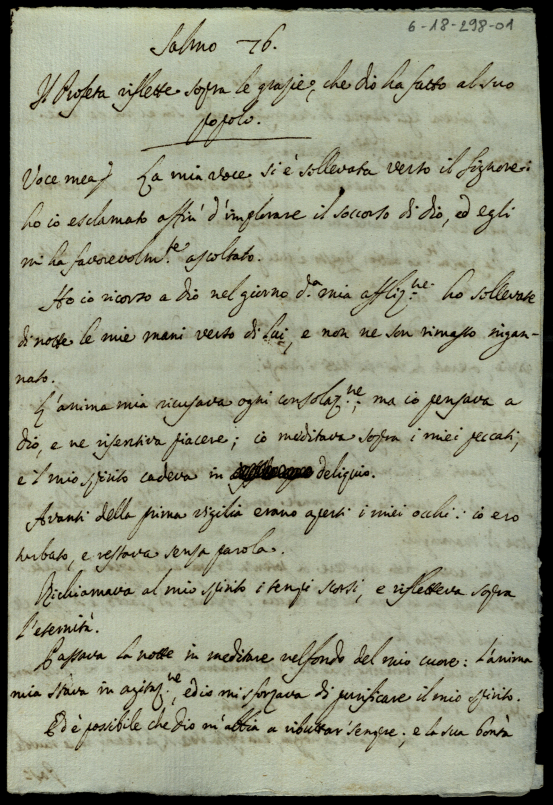 6-18-298-01
Salmo 76.
Il Profeta riflette sopra le grazie, che dio ha fatto al suo
popolo.
Voce mea) La mia voce si è sollevata verso il Signore:
ho io esclamato affin d'implorare il soccorso di dio, ed egli
mi ha favorevolm.te ascoltato.
Ho io ricorso a dio nel giorno d.a mia affliz.ne ho sollevate
di notte le mie mani verso di lui, e non ne son rimasto ingan-
nato.
L'anima mia ricusava ogni consolaz.ne, ma io pensava a
dio, e ne risentiva piacere; io meditava sopra i miei peccati,
e il mio spirito cadeva in deliquio.
Avanti della prima vigilia erano aperti i miei occhi: io ero
turbato, e restava senza parola.
Richiamava al mio spirito i tempi scorsi, e rifletteva sopra
l'eternità.
Passava la notte in meditare nel fondo del mio cuore: l'anima
mia stava in agitaz.ne, ed io mi sforzava di purificare il mio spirito.
Ed è possibile che dio m'abbia a ributtar sempre; e la sua bontà